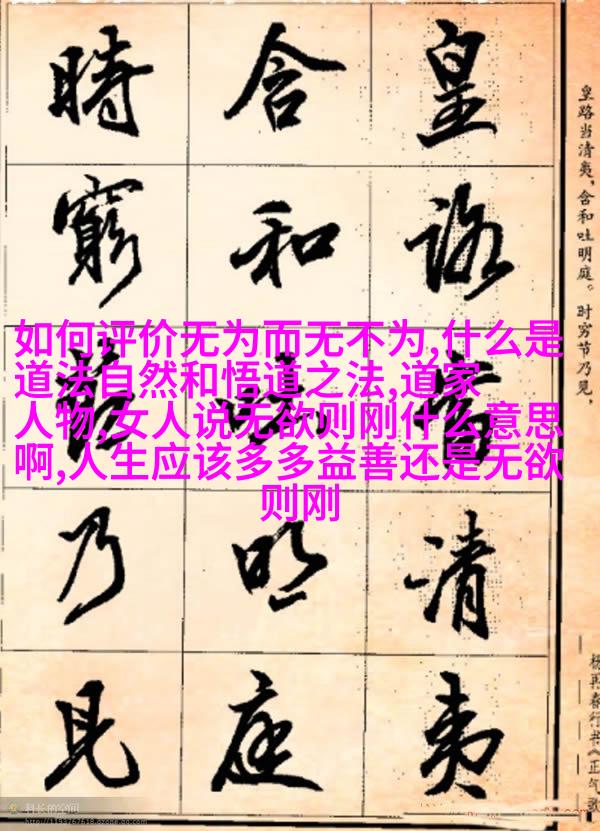 皇路清夷
含和明庭
時窮乃見
皇路当清夷，含和吐明庭。时穷节乃见，
杨再春行书《正气歌
如何评价无为而无不为,什么是
道法自然和悟道之法,道家
人物,女人说无欲则刚什么意思
啊,人生应该多多益善还是无欲
则刚
科长的空间